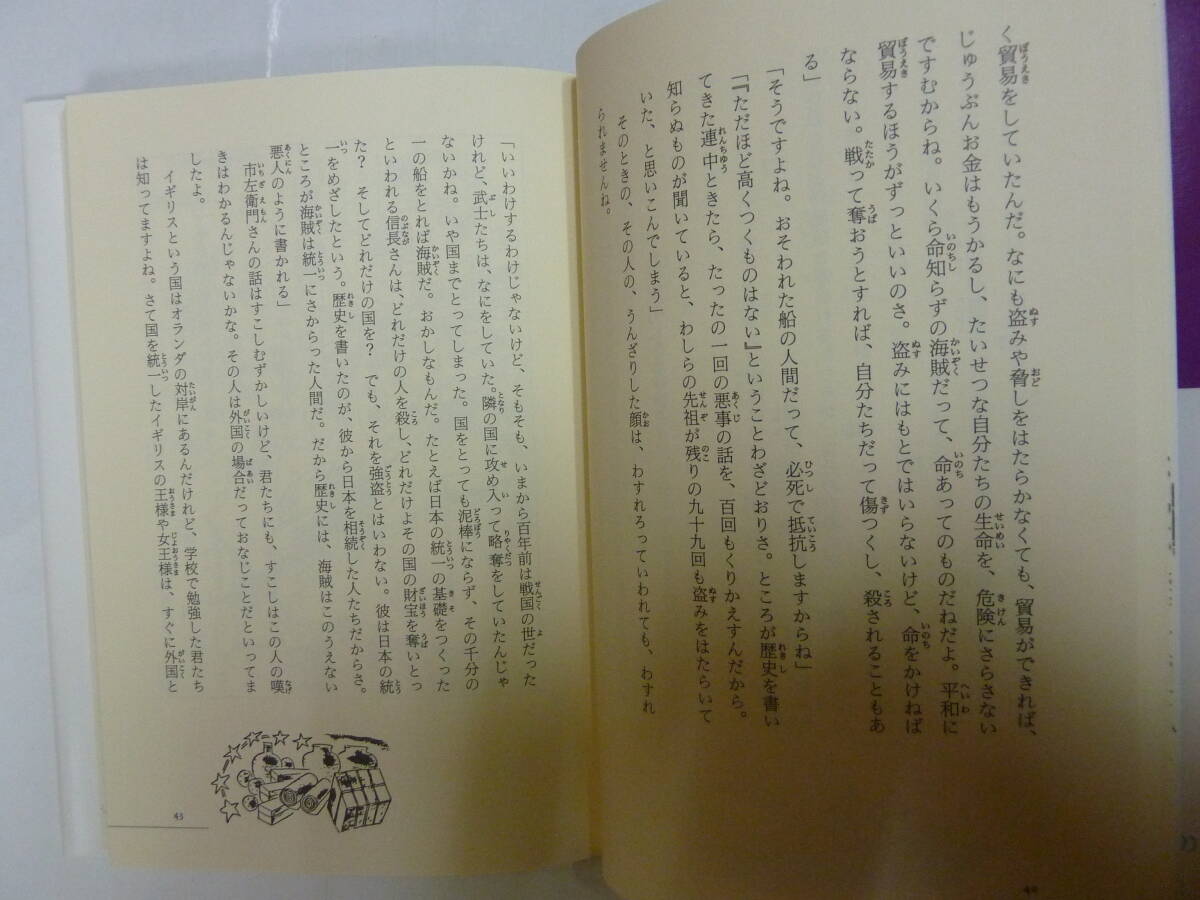 く貿易をしていたんだ。なにも盗みや脅しをはたらかなくても、貿易ができれば、
じゅうぶんお金はもうかるし、たいせつな自分たちの生命を、危険にさらさない
ですむからね。いくら命知らずの海賊だって、命あってのものだねだよ。平和に
貿易するほうがずっといいのさ。盗みにはもとではいらないけど、命をかけねば
ならない。戦って奪おうとすれば、自分たちだって傷つくし、殺されることもあ
る」
「そうですよね。おそわれた船の人間だって、必死で抵抗しますからね」
「『ただほど高くつくものはない』ということわざどおりさ。ところが歴史を書い
てきた連中ときたら、たったの一回の悪事の話を、百回もくりかえすんだから。
知らぬものが聞いていると、わしらの先祖が残りの九十九回も盗みをはたらいて
いた、と思いこんでしまう」
そのときの、その人の、うんざりした顔は、わすれろっていわれても、わすれ
られませんね。
「いいわけするわけじゃないけど、そもそも、いまから百年前は戦国の世だった
けれど、武士たちは、なにをしていた。隣の国に攻め入って略奪をしていたんじゃ
ないかね。いや国までとってしまった。国をとっても泥棒にならず、その千分の
一の船をとれば海賊だ。おかしなもんだ。たとえば日本の統一の基礎をつくった
といわれる信長さんは、どれだけの人を殺し、どれだけよその国の財宝を奪いとっ
た？　そしてどれだけの国を？　でも、それを強盗とはいわない。彼は日本の統
一をめざしたという。歴史を書いたのが、彼から日本を相続した人たちだからさ。
ところが海賊は統一にさからった人間だ。だから歴史には、海賊はこのうえない
悪人のように書かれる」
市左衛門さんの話はすこしむずかしいけど、君たちにも、すこしはこの人の嘆
きはわかるんじゃないかな。その人は外国の場合だっておなじことだといってま
したよ。
イギリスという国はオランダの対岸にあるんだけれど、学校で勉強した君たち
は知ってますよね。さて国を統一したイギリスの王様や女王様は、すぐに外国と
43